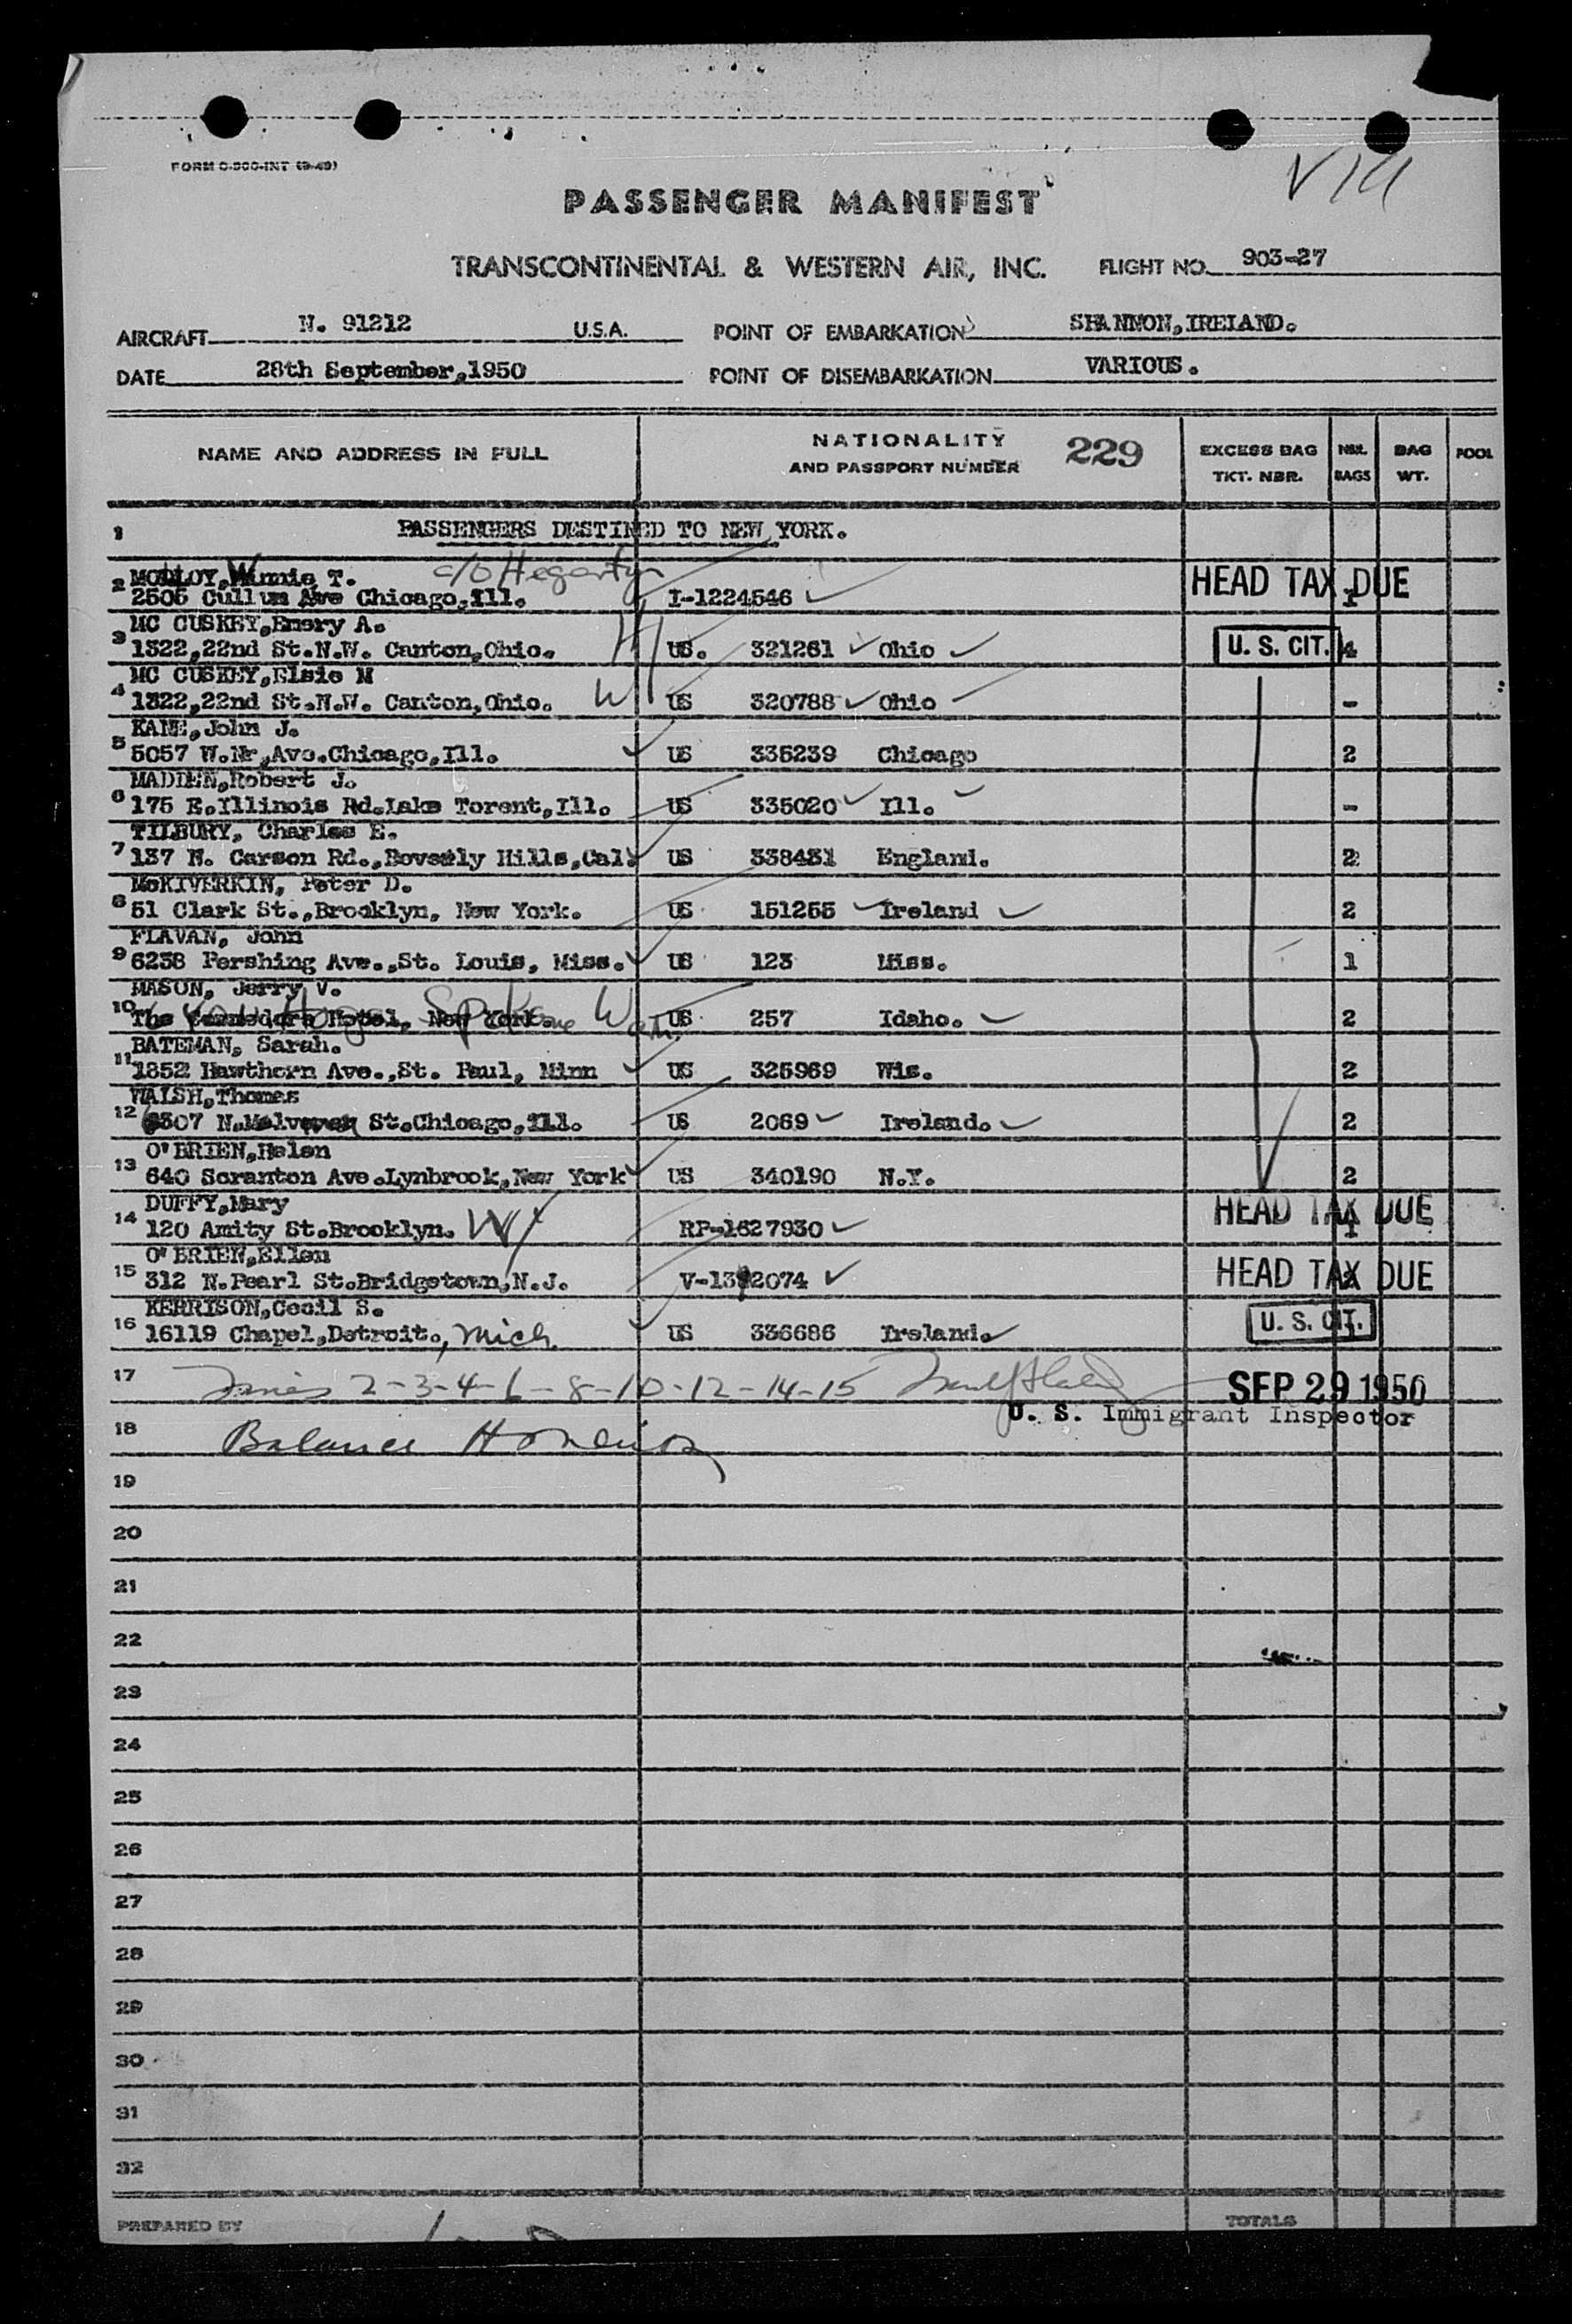 FORM O-300-INT (9-49)
V14
PASSENGER MANIFEST
TRANSCONTINENTAL & WESTERN AIR, INC. FLIGHT NO. 903-27
AIRCRAFT N. 91212 U.S.A. POINT OF EMBARKATION SHANNON,IRELAND.
DATE 28th September,1950 POINT OF DISEMBARKATION VARIOUS.
NAME AND ADDRESS IN FULL NATIONALITY AND PASSPORT NUMBER 229 EXCESS BAG TKT. NBR. NBR. BAGS BAG WT. POOL
1 PASSENGERS DESTINED TO NEW YORK.
c/o Hegarty
2 Winnie T.
2506 Cullum Ave Chicago,Ill. I-1224546 HEAD TAX DUE 1
3 MC CUSKEY,Emery A.
1322,22nd St.N.W. Canton,Ohio. US. 321261 Ohio U. S. CIT. 4
MC CUSKEY,Elsie M
4 1322,22nd St.N.W. Canton,Ohio. US 320788 Ohio -
KANE,John J.
5 5057 W. Ave.Chicago,Ill. US 335239 Chicago 2
MADDEN,Robert J.
6 175 E.Illinois Rd.Lake Torent,Ill. US 335020 Ill. -
TILBURY, Charles E.
7 137 N. Carson Rd.,Beverly Hills,Cal. US 338431 England. 2
McKIVERKIN, Peter D.
8 51 Clark St.,Brooklyn, New York. US 151255 Ireland 2
FLAVAN, John
9 6238 Pershing Ave.,St. Louis, Miss. US 123 Miss. 1
MASON, Jerry V.
10 The Hotel, New York. Spokane Wash. US 257 Idaho. 2
BATEMAN, Sarah.
11 1852 Hawthorn Ave.,St. Paul, Minn US 325969 Wis. 2
WALSH,Thomas
12 6307 N. St.Chicago,Ill. US 2069 Ireland. 2
O'BRIEN,Helen
13 640 Scranton Ave.Lynbrook,New York US 340190 N.Y. 2
DUFFY,Mary
14 120 Amity St.Brooklyn. RP-1627930 HEAD TAX DUE 1
O'BRIEN,Ellen
15 312 N.Pearl St.Bridgetown,N.J. V-1392074 HEAD TAX DUE
KERRISON,Cecil S.
16 16119 Chapel,Detroit., Mich. US 336686 Ireland. U. S. CIT.
17 2-3-4-6-8-10-12-14-15 SEP 29 1950
U. S. Immigrant Inspector
18 Balance
19
20
21
22
23
24
25
26
27
28
29
30
31
32
PREPARED BY TOTALS